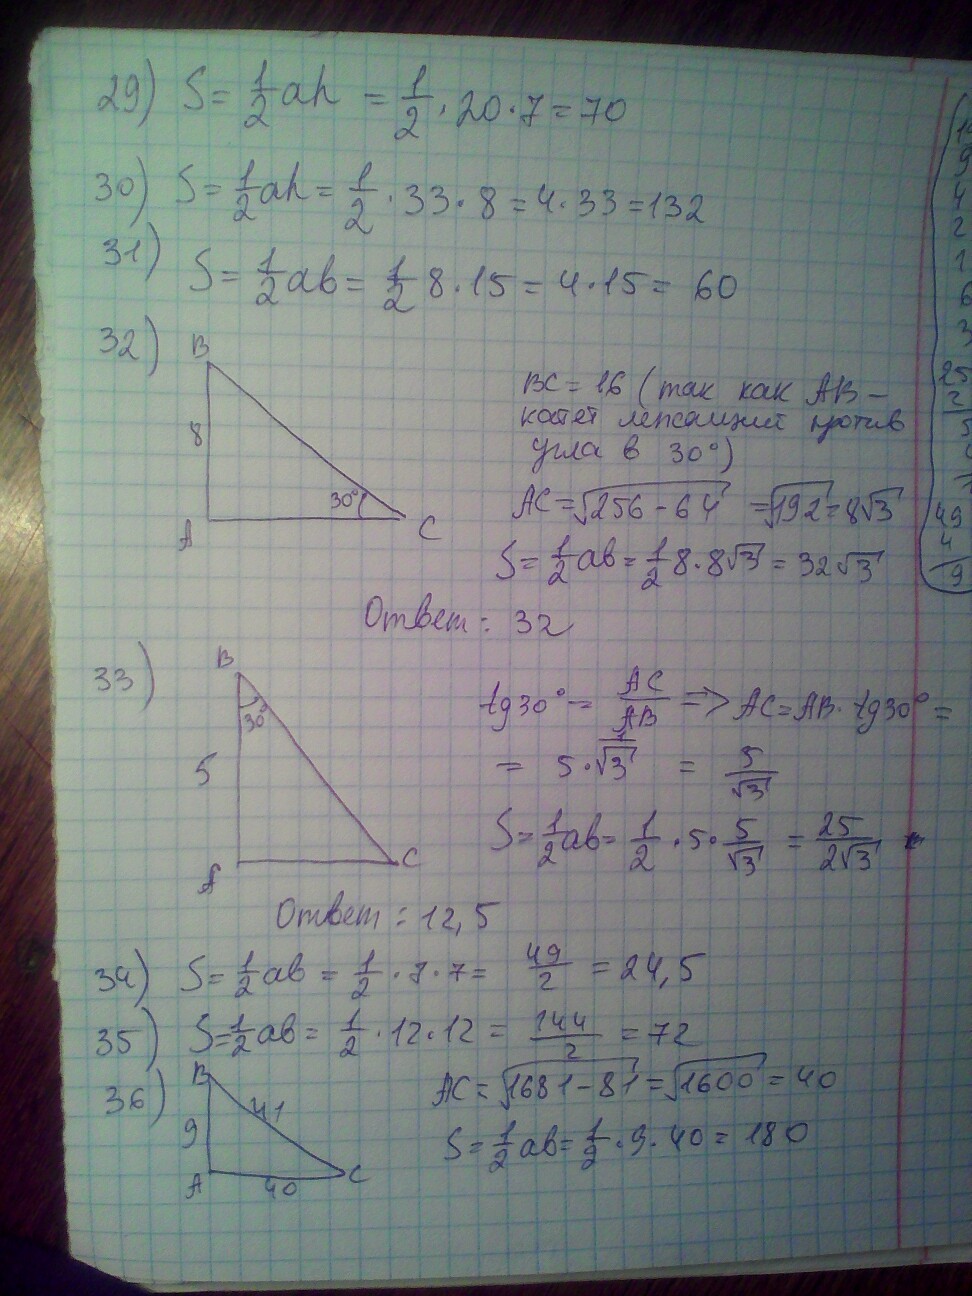 29) S = 1/2 ah = 1/2 · 20 · 7 = 70
30) S = 1/2 ah = 1/2 · 33 · 8 = 4 · 33 = 132
31) S = 1/2 ab = 1/2 8 · 15 = 4 · 15 = 60
32)
B
8
A
30°
C
BC = 16 (так как AB –
катет лежащий против
угла в 30°)
AC = √256 - 64 = √192 = 8√3
S = 1/2 ab = 1/2 8 · 8√3 = 32√3
Ответ: 32
33)
B
30°
5
A
C
tg30° = AC/AB => AC = AB · tg30° =
= 5 · 1/√3 = 5/√3
S = 1/2 ab = 1/2 · 5 · 5/√3 = 25/2√3
Ответ: 12,5
34) S = 1/2 ab = 1/2 · 7 · 7 = 49/2 = 24,5
35) S = 1/2 ab = 1/2 · 12 · 12 = 144/2 = 72
36)
B
41
9
A
40
C
AC = √1681 - 81 = √1600 = 40
S = 1/2 ab = 1/2 · 9 · 40 = 180
9
4
2
1
6
3
25
2
5
49
4
9